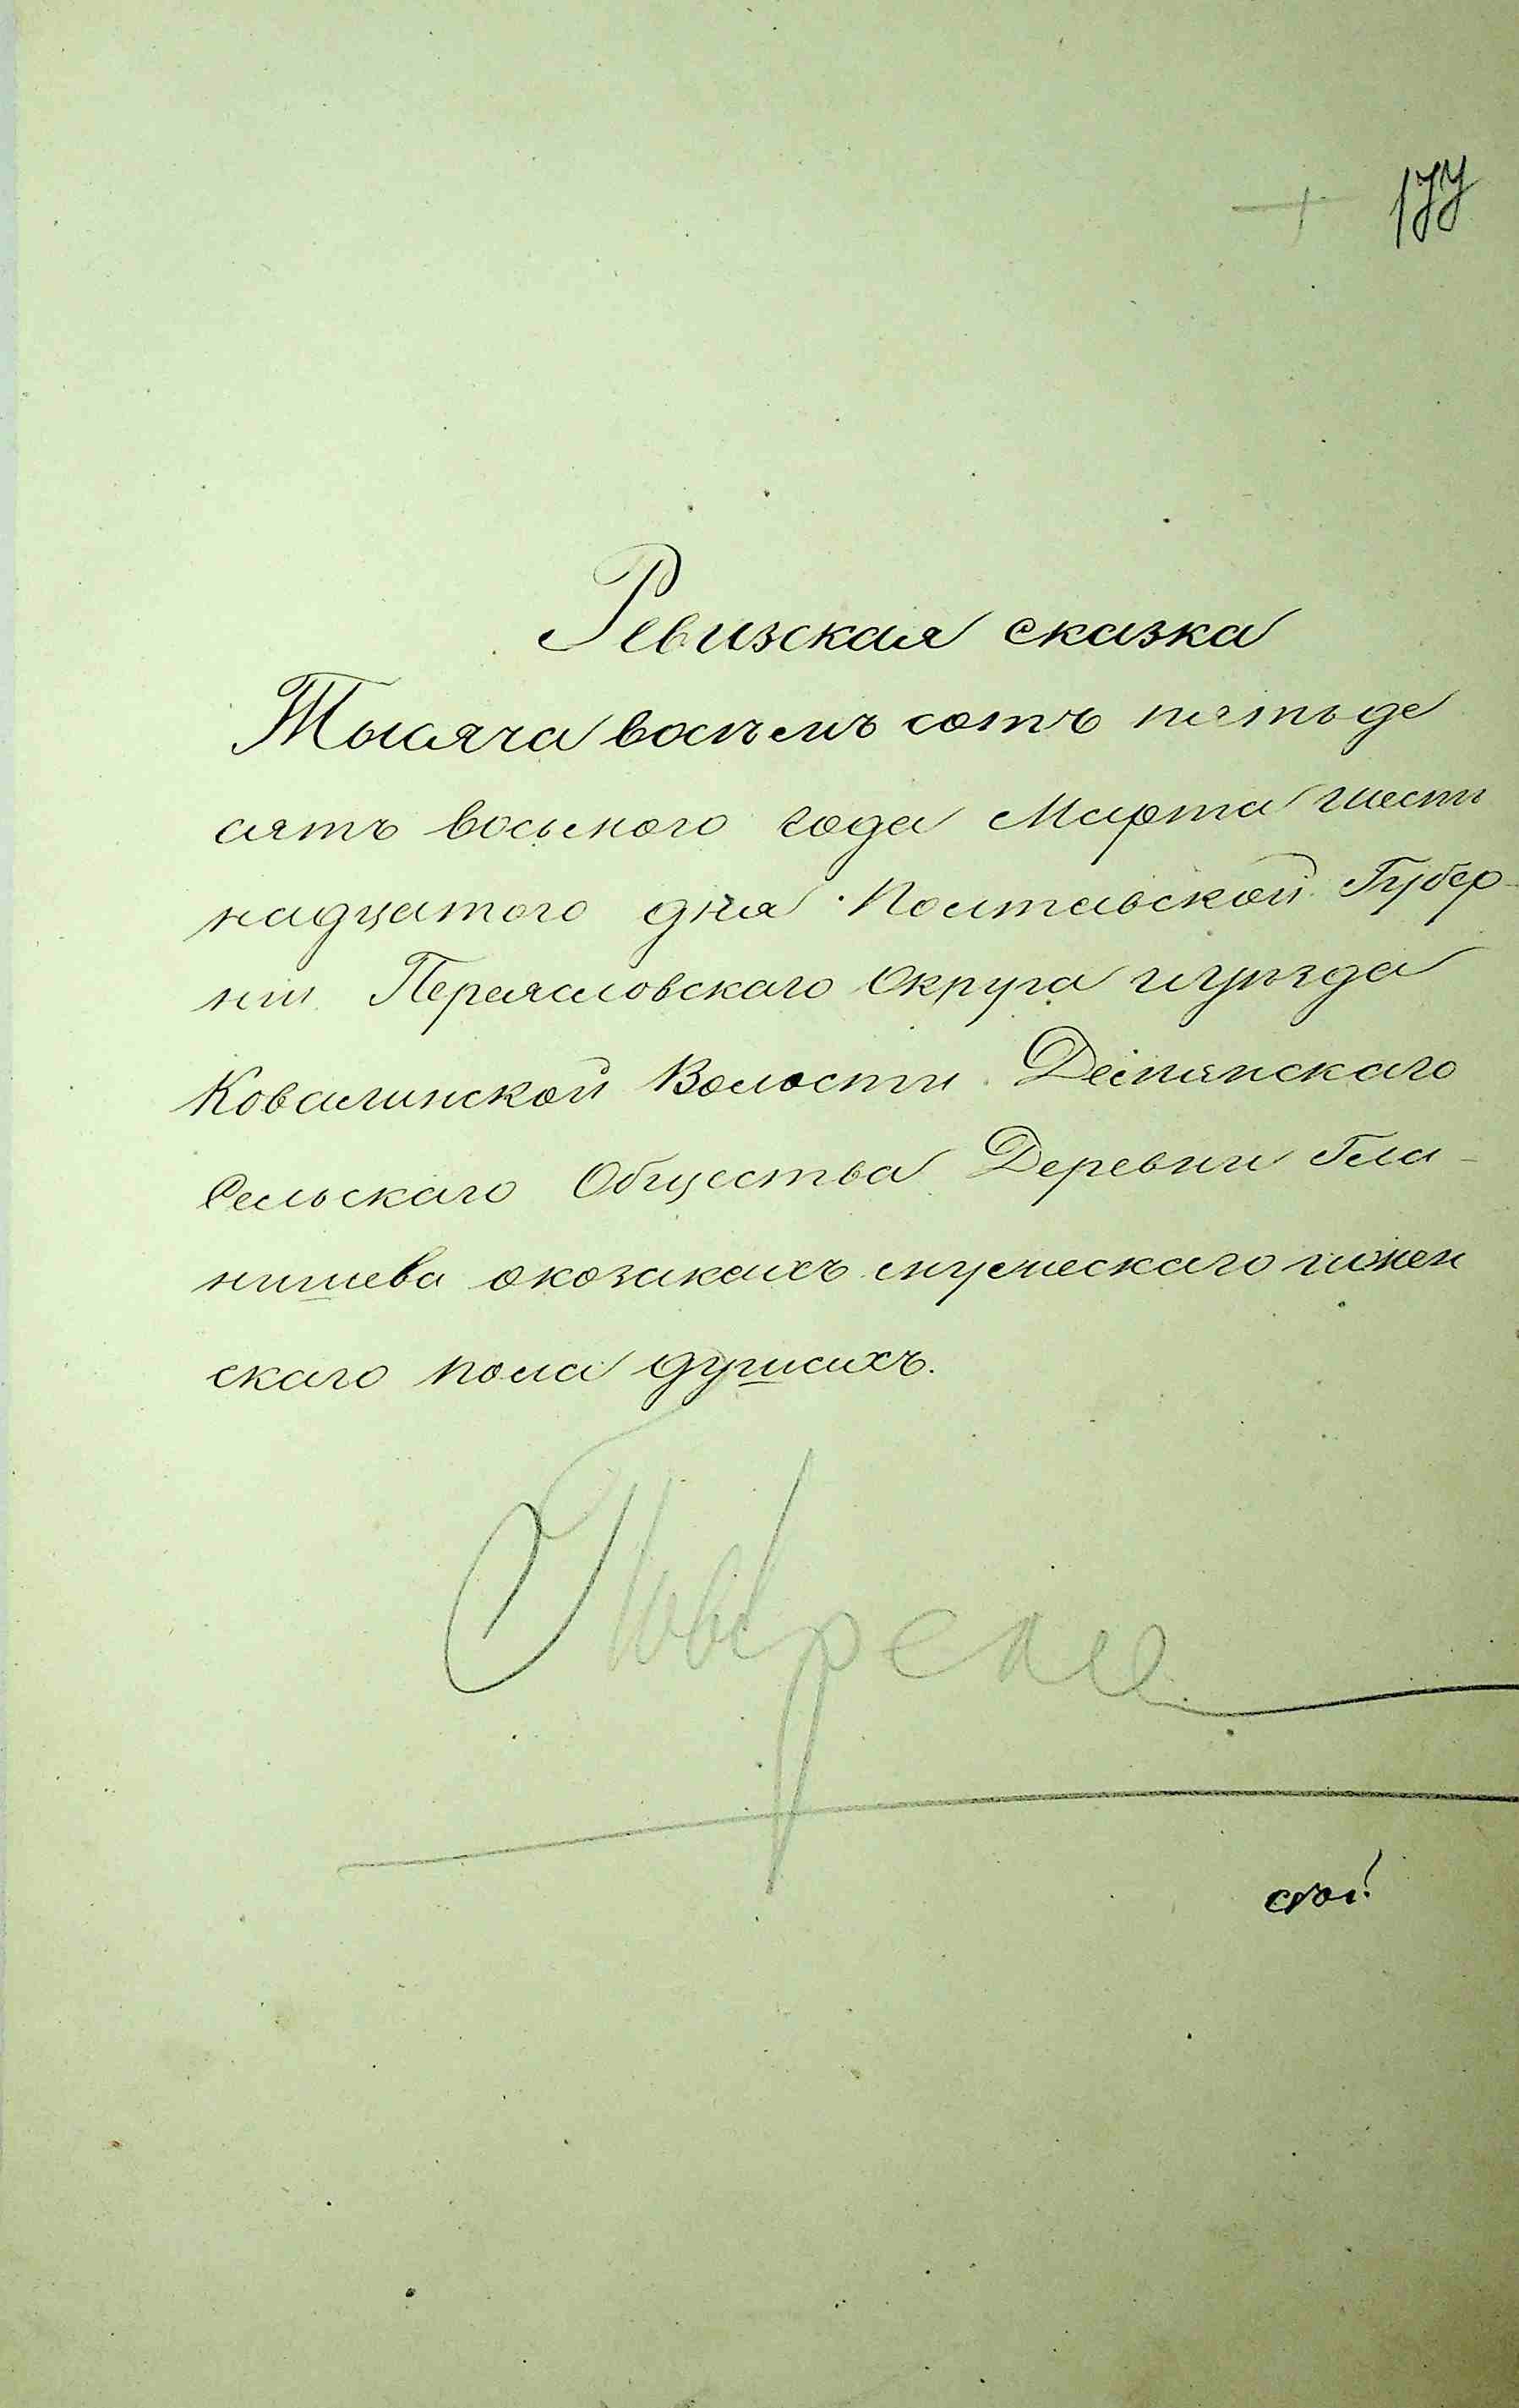 177
Ревизская сказка
Тысяча восъемъ сотъ пятьде
сятъ восьмого года Марта шест
надцатого дня Полтавской Губер-
нии Переясловскаго Округа иуѣзда
Ковалинской Волости Демянскаго
Сельскаго Общества Деревни Гла-
нишева окозакахъ мужескаго ижен
скаго пола душахъ.